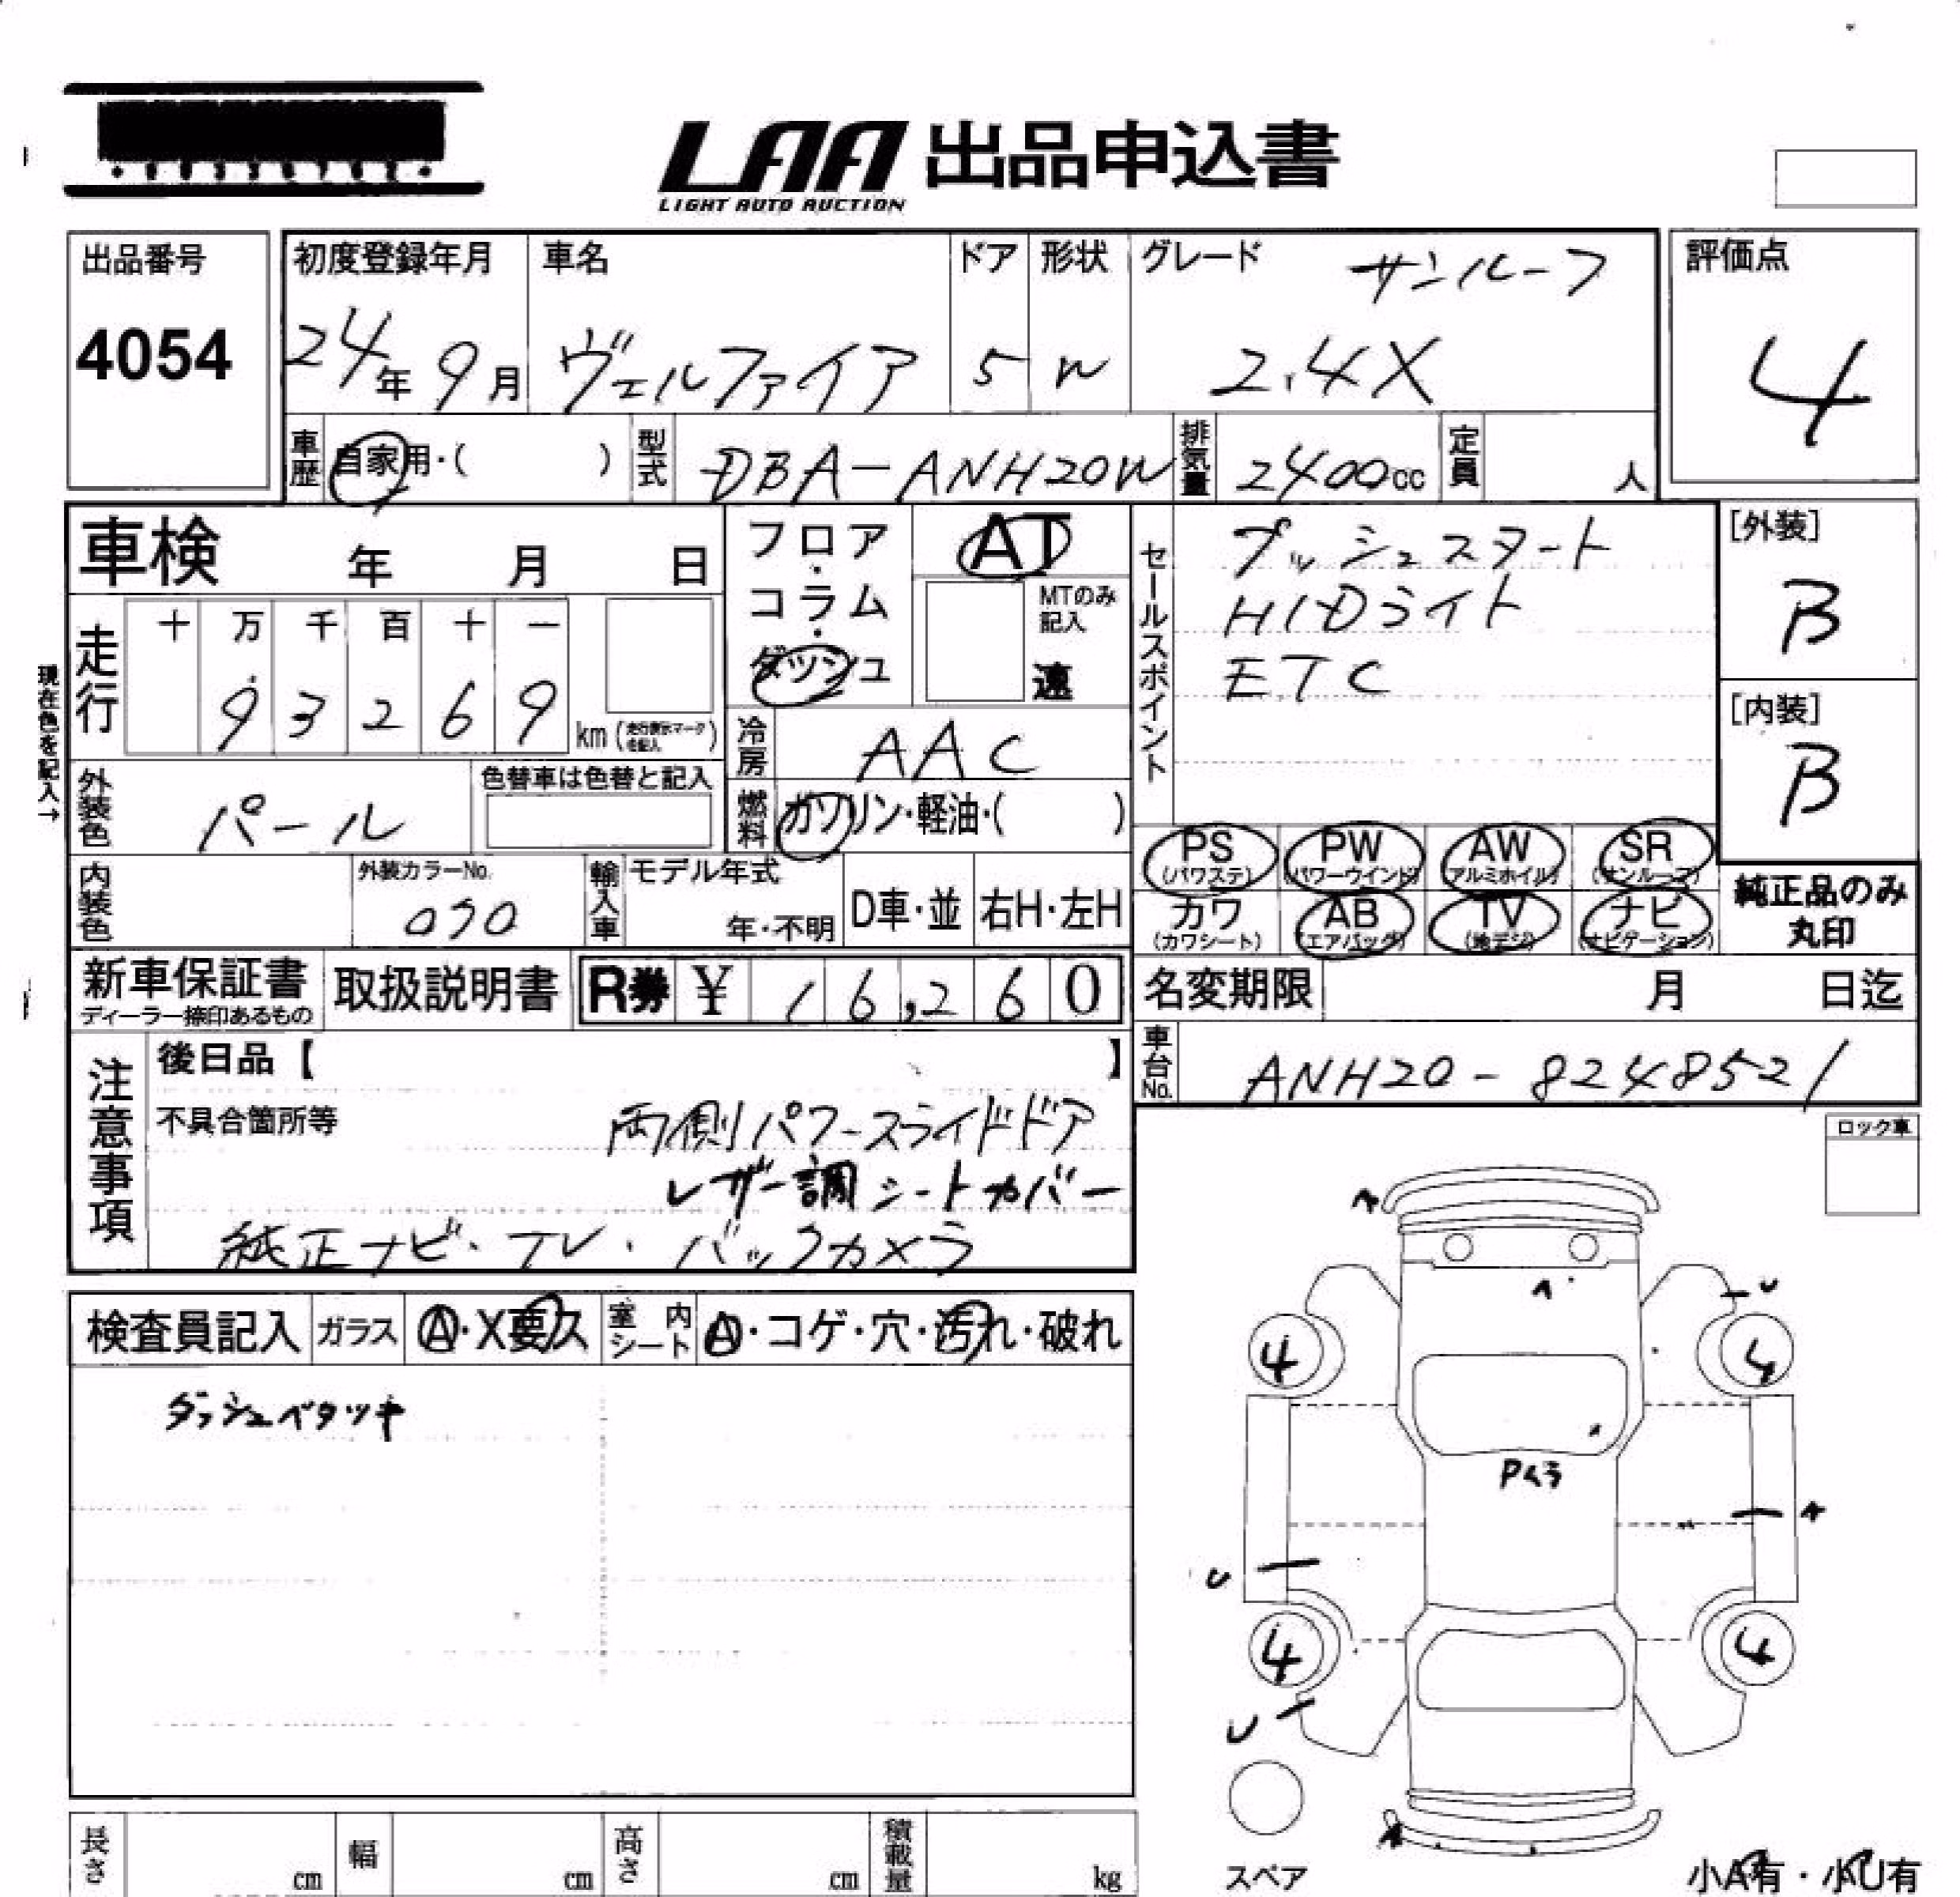 LAA 出品申込書
LIGHT AUTO AUCTION
出品番号
4054
初度登録年月
24年9月
車名
ヴェルファイア
ドア
5
形状
W
グレード
サンルーフ
2.4X
評価点
4
車歴 自家用・( )
型式 DBA-ANH20W
排気量 2400cc
定員 人
車検 年 月 日
フロア・コラム・ダッシュ
AT
MTのみ記入
速
セールスポイント
プッシュスタート
HIDライト
ETC
[外装]
B
[内装]
B
現在色を記入→
走行
十 万 千 百 十 一
9 3 2 6 9 km
冷房 AAC
外装色 パール
色替車は色替と記入
燃料 ガソリン・軽油・( )
PS (パワステ)
PW (パワーウインド)
AW (アルミホイル)
SR (サンルーフ)
カワ (カワシート)
AB (エアバッグ)
TV (地デジ)
ナビ (ナビゲーション)
純正品のみ
丸印
内装色
外装カラーNo.
070
輸入車
モデル年式
年・不明
D車・並
右H・左H
新車保証書
ディーラー捺印あるもの
取扱説明書
R券 ¥ 16,260
名変期限 月 日迄
車台No. ANH20-8248521
注意事項
後日品【 】
不具合箇所等
両側パワースライドドア
レザー調シートカバー
純正ナビ・TV・バックカメラ
ロック車
検査員記入
ガラス
A・X要久
室内シート
A・コゲ・穴・汚れ・破れ
ダッシュベタツキ
A
A
U
4
4
Pムラ
A
U
4
4
U
A
スペア
小A有・小U有
長さ cm
幅 cm
高さ cm
積載量 kg